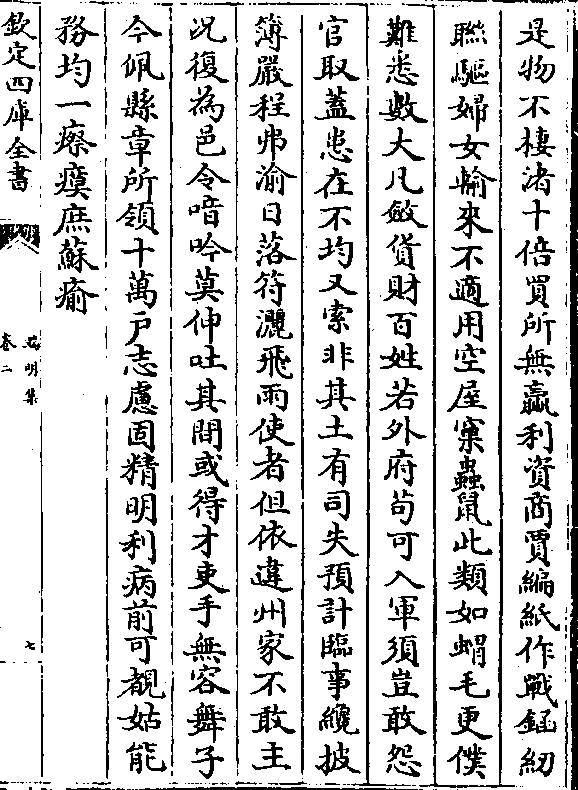 是物不棲渚十倍買所無贏利資商賈編紙作戰鎧紉
聮驅婦女輸來不適用空屋窠蟲鼠此類如蝟毛更僕
難悉數大凡斂貨財百姓若外府茍可入軍須豈敢怨
官取蓋患在不均又索非其土有司失預計臨事纔披
簿嚴程弗渝日落符灑飛雨使者但依違州家不敢主
况復為邑令喑吟莫伸吐其間或得才更手無容舞子
今佩縣章所領十萬戶志慮固精明利病前可覩姑能
務均一瘵瘼庶蘇瘉
欽定四庫全書
端明集
卷二
七